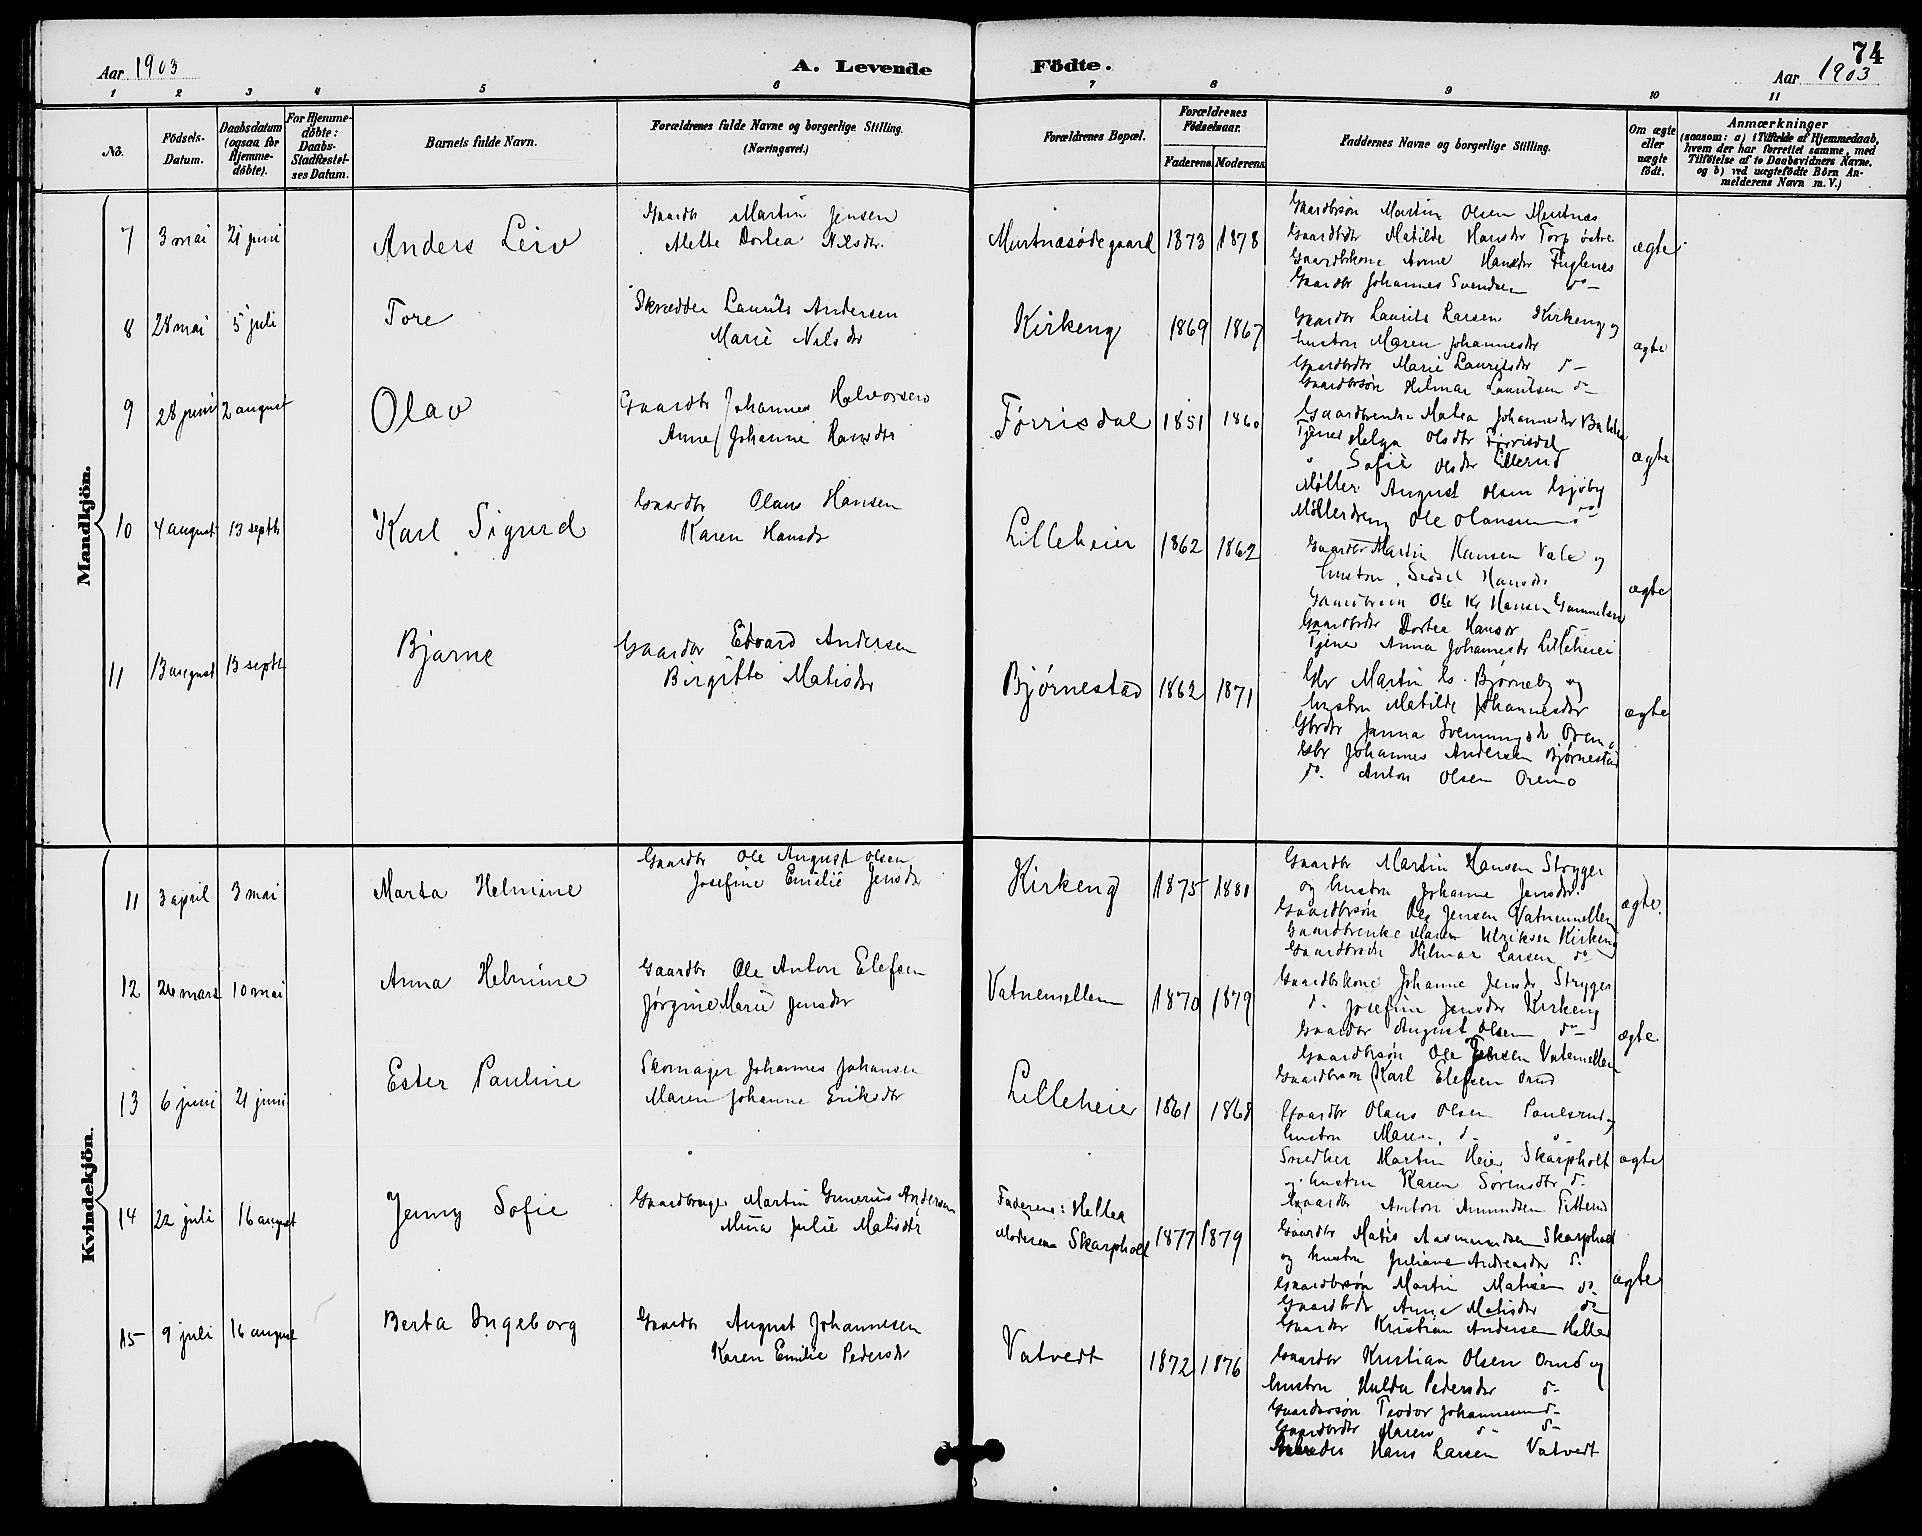 Aar 1903
A. Levende Födte.
74
Aar 1903
1 2 3 4 5 6 7 8 9 10 11
No.
Födsels-Datum.
Daabsdatum (ogsaa for Hjemme-döbte).
For Hjemme-döbte: Daabs-Stadfæstel-ses Datum.
Barnets fulde Navn.
Forældrenes fulde Navne og borgerlige Stilling.
(Næringsvei.)
Forældrenes Bopæl.
Forældrenes Födselsaar.
Faderens. Moderens.
Faddernes Navne og borgerlige Stilling.
Om ægte eller uægte födt.
Anmærkninger
(saasom: a) i Tilfælde af Hjemmedaab,
hvem der har forrettet samme, med
Tilföielse af to Daabsvidners Navne,
og b) ved uægtefödte Börn An-
melderens Navn m. V.)
Mandkjön.
7 3 mai 21 juni Anders Leiv
Gaardbr Martin Jensen
Mette Dortea Nilsdtr.
1873 1878
Gaardbrsön Martin Olsen Mustnæs
Gaardbdtr Matilde Hansdtr Torp östre
Gaardbrkone Anne Hansdtr Fuglenes
Gaardbr Johannes Svendsen do
ægte
8 28 mai 5 juli Tore
Skrædder Laurits Andersen
Marie Nilsdtr
Kirkeng 1869 1867
Gaardbr Laurits Larsen Kirkeng og
hustru Maren Johannesdtr
Gaardbrdtr Marie Lauritsdtr d-
Gaardbrsön Helmar Lauritsen do
ægte
9 28 juni 2 august Olav
Gaardbr Johannes Halvorsen
Anne Johanne Hansdtr
Førrisdal 1851 1860
Gaardbrenke Malea Johannesdtr
Tjener Helga Olsdtr Förrisdal
" Sofie Olsdtr Lillerud
Møller August Olsen Gjøby
Møllerdreng Ole Olausen do
ægte
10 4 august 13 septb Karl Sigurd
Gaardbr Olaus Hansen
Karen Hansdtr
Lilleheier 1862 1862
Gaardbr Martin Hansen Vale og
hustru Sedsel Hansdtr
Gaardbrsön Ole Kr Hansen
Gaardbrdtr Dortea Hansdtr
Tjener Anna Johannesdtr Lilleheier
ægte
11 13 august 13 septb Bjarne
Gaardbr Edvard Andersen
Birgitte Matisdtr
Bjørnestad 1862 1871
Gbr Martin Bjørneby og
hustru Matilde Johannesdtr
Gbrdtr Janna
Gbr Johannes Andersen Bjørnestad
do. Anton Olsen
ægte
Kvindekjön.
11 3 april 3 mai Marta Helmine
Gaardbr Ole August Olsen
Josefine Emilie Jensdtr
Kirkeng 1875 1881
Gaardbr Martin Hansen Stryger
og hustru Johanne Jensdtr.
Gaardbrsön Ole Jensen Vatnemellem
Gaardbrenke Maren Ulriksen Kirkeng
Gaardbrsön Helmar Larsen do
ægte.
12 26 mars 10 mai Anna Helmine
Gaardbr Ole Anton Elefsen
Jørgine Marie Jensdtr
Vatnemellem 1870 1879
Gaardbrkone Johanne Jensdtr Stryger
d. Josefine Jensdtr Kirkeng
Gaardbr August Olsen do
Gaardbrsön Ole Jensen Vatnemellem
Gaardbrsön Karl Elefsen
ægte
13 6 juni 21 juni Ester Pauline
Skomager Johannes Johansen
Maren Johanne Eriksdtr
Lilleheier 1861 1868
Gaardbr Olaus Olsen Paulsrud og
hustru Maren d-
Snedker Martin Heier Skarpholt
og hustru Karen Sörensdtr d-
Gaardbr Anton Amundsen
ægte
14 22 juli 16 august Jenny Sofie
Gaardbruger Martin Gunerius Andersen
Mina Julie Matisdtr
Faderens: Hellea
Moderens Skarpholt 1877 1879
Gaardbr Matis Aasmundsen Skarpholt
og hustru Juliane Andreasdtr d.
Gaardbrsön Martin Matisen do
Gaardbrdtr Anna Matisdtr do
Gaardbr Kristian Andersen Hellea
ægte
15 9 juli 16 august Berta Ingeborg
Gaardbr August Johannesen
Karen Emilie Pedersdtr
Vatvedt 1872 1876
Gaardbr Kristian Olsen og
hustru Hulda Pedersdtr d-
Gaardbrsön Teodor Johannesen d-
Gaardbrdtr Maren d- d-
Hans Larsen Vatvedt